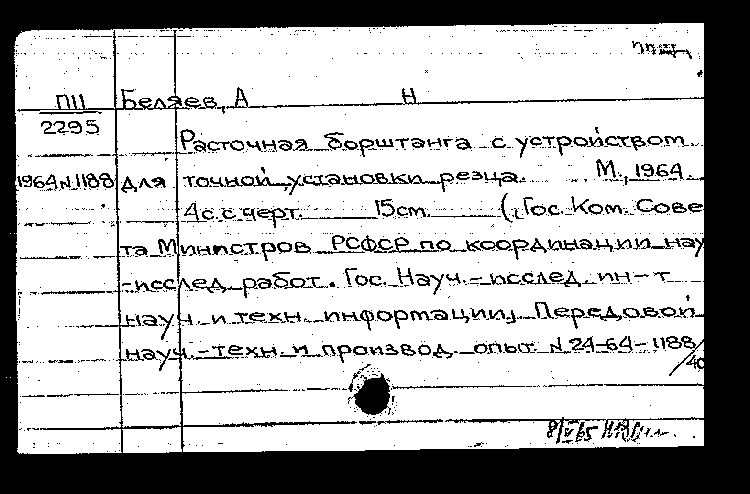 ПII Беляев, А Н
2295
Расточная борштанга с устройством
1964 N 1188 для точной установки резца. М., 1964.
4с. с черт. 15см. (Гос. Ком. Сове
та Министров РСФСР по координации нау
-исслед. работ. Гос. Науч.-исслед. ин-т
науч. и техн. информации, Передовой
науч.-техн. и производ. опыт. N 24-64-1188/40
8/V 65